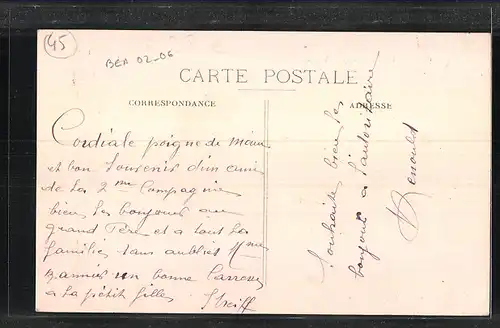 45
BEA 02-06
CARTE POSTALE
CORRESPONDANCE
ADRESSE
Cordiale poigne de main
et bon Souvenir d'un ami
de la 2me Compagnie
bien les bonjours au
grand Père et a tout les
familles sans oublier Mme
un bonne
a la petit filles
Souhaite bien les
bonjour a
Renould